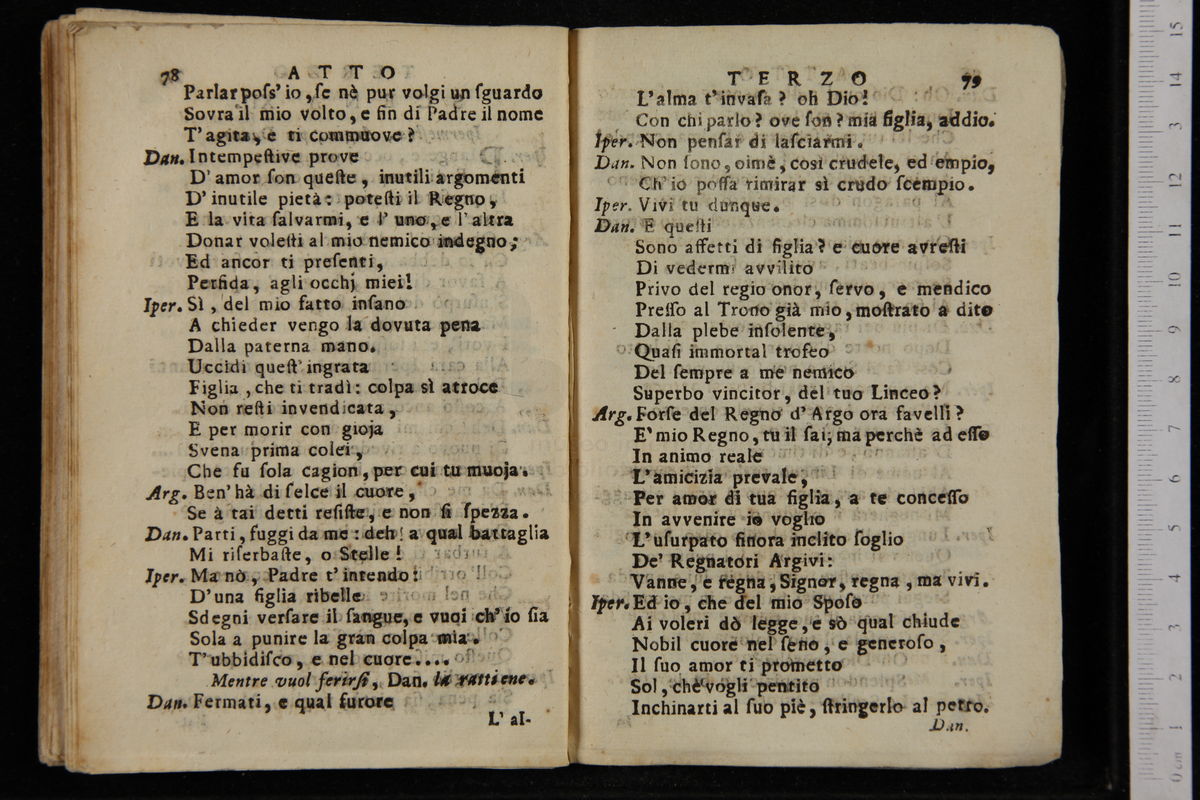 78 ATTO
Parlar poſs' io, ſe nè pur volgi un ſguardo
Sovra il mio volto, e ſin di Padre il nome
T' agita, e ti commuove?
Dan. Intempeſtive prove
D' amor ſon queſte, inutili argomenti
D' inutile pietà: poteſti il Regno,
E la vita ſalvarmi, e l' uno, e l' altra
Donar voleſti al mio nemico indegno;
Ed ancor ti preſenti,
Perfida, agli occhj miei!
Iper. Sì, del mio fatto inſano
A chieder vengo la dovuta pena
Dalla paterna mano.
Uccidi queſt' ingrata
Figlia, che ti tradì: colpa sì atroce
Non reſti invendicata,
E per morir con gioja
Svena prima colei,
Che fu ſola cagion, per cui tu muoja.
Arg. Ben' hà di ſelce il cuore,
Se à tai detti reſiſte, e non ſi ſpezza.
Dan. Parti, fuggi da me: deh! a qual battaglia
Mi riſerbaſte, o Stelle!
Iper. Ma nò, Padre t' intendo:
D' una figlia ribelle
Sdegni verſare il ſangue, e vuoi ch' io ſia
Sola a punire la gran colpa mia.
T' ubbidiſco, e nel cuore....
Mentre vuol ferirſi, Dan. la rattiene.
Dan. Fermati, e qual furore
L' al-
TERZO 79
L' alma t' invaſa? oh Dio!
Con chi parlo? ove ſon? mia figlia, addio.
Iper. Non penſar di laſciarmi.
Dan. Non ſono, oimè, così crudele, ed empio,
Ch' io poſſa rimirar sì crudo ſcempio.
Iper. Vivi tu dunque.
Dan. E queſti
Sono affetti di figlia? e cuore avreſti
Di vedermi avvilito
Privo del regio onor, ſervo, e mendico
Preſſo al Trono già mio, moſtrato a dito
Dalla plebe inſolente,
Quaſi immortal trofeo
Del ſempre a me nemico
Superbo vincitor, del tuo Linceo?
Arg. Forſe del Regno d' Argo ora favelli?
E' mio Regno, tu il ſai; ma perchè ad eſſo
In animo reale
L' amicizia prevale,
Per amor di tua figlia, a te conceſſo
In avvenire io voglio
L' uſurpato finora inclito ſoglio
De' Regnatori Argivi:
Vanne, e regna, Signor, regna, ma vivi.
Iper. Ed io, che del mio Spoſo
Ai voleri dò legge, e sò qual chiude
Nobil cuore nel ſeno, e generoſo,
Il ſuo amor ti prometto
Sol, che vogli pentito
Inchinarti al ſuo piè, ſtringerlo al petto.
Dan.
15
14
13
12
11
10
9
8
7
6
5
4
3
2
1
0 cm